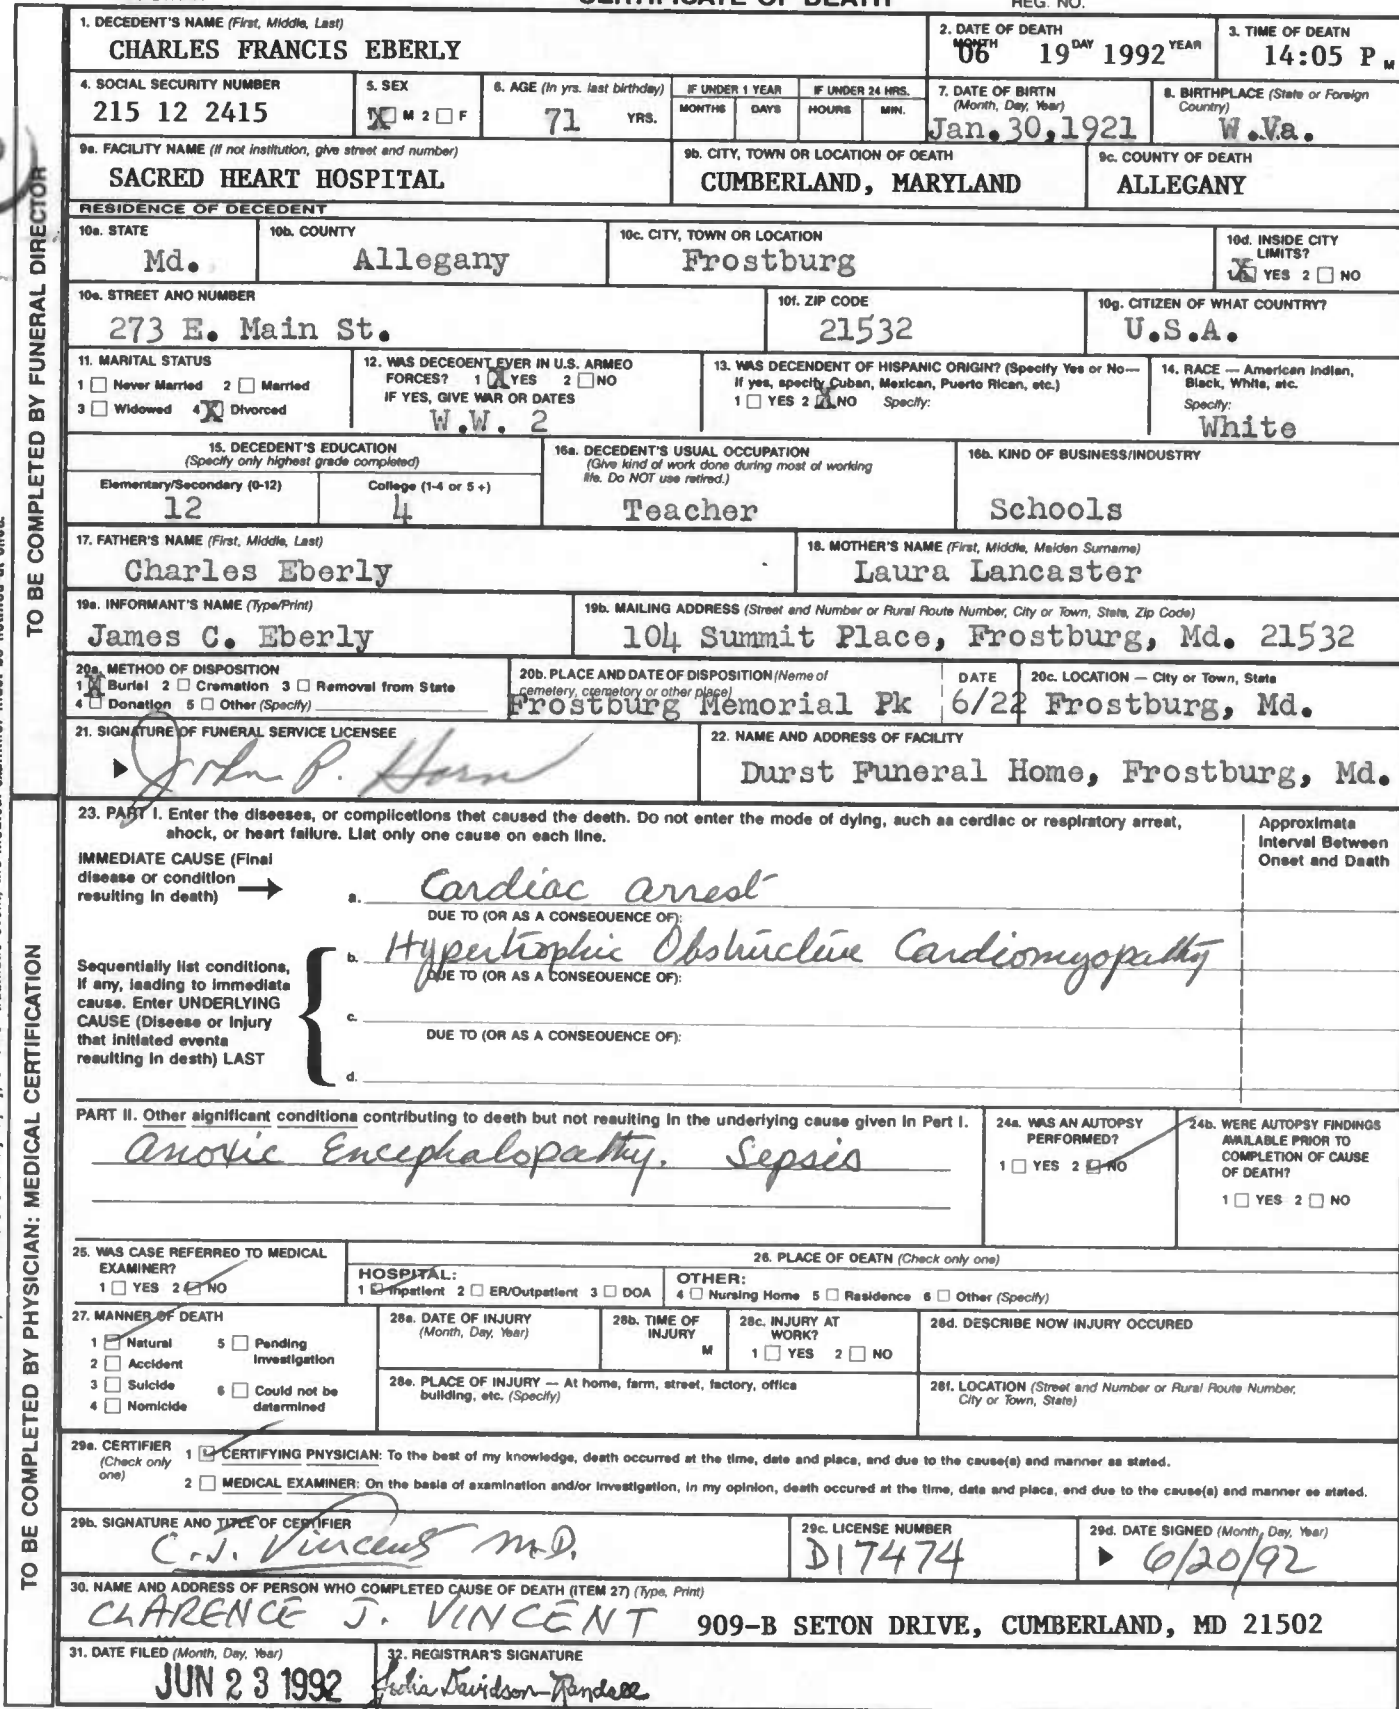 CERTIFICATE OF DEATH REG. NO.
1. DECEDENT'S NAME (First, Middle, Last)
CHARLES FRANCIS EBERLY
2. DATE OF DEATH
MONTH DAY YEAR
06 19 1992
3. TIME OF DEATH
14:05 P M
4. SOCIAL SECURITY NUMBER
215 12 2415
5. SEX
1 X M 2 ☐ F
6. AGE (In yrs. last birthday)
71 YRS.
IF UNDER 1 YEAR
MONTHS DAYS
IF UNDER 24 HRS.
HOURS MIN.
7. DATE OF BIRTH
(Month, Day, Year)
Jan.30,1921
8. BIRTHPLACE (State or Foreign Country)
W.Va.
9a. FACILITY NAME (If not institution, give street and number)
SACRED HEART HOSPITAL
9b. CITY, TOWN OR LOCATION OF DEATH
CUMBERLAND, MARYLAND
9c. COUNTY OF DEATH
ALLEGANY
RESIDENCE OF DECEDENT
10a. STATE
Md.
10b. COUNTY
Allegany
10c. CITY, TOWN OR LOCATION
Frostburg
10d. INSIDE CITY LIMITS?
1 X YES 2 ☐ NO
10e. STREET AND NUMBER
273 E. Main St.
10f. ZIP CODE
21532
10g. CITIZEN OF WHAT COUNTRY?
U.S.A.
11. MARITAL STATUS
1 ☐ Never Married 2 ☐ Married
3 ☐ Widowed 4 X Divorced
12. WAS DECEDENT EVER IN U.S. ARMED
FORCES? 1 X YES 2 ☐ NO
IF YES, GIVE WAR OR DATES
W.W. 2
13. WAS DECENDENT OF HISPANIC ORIGIN? (Specify Yes or No—
If yes, specify Cuban, Mexican, Puerto Rican, etc.)
1 ☐ YES 2 X NO Specify:
14. RACE — American Indian,
Black, White, etc.
Specify:
White
15. DECEDENT'S EDUCATION
(Specify only highest grade completed)
Elementary/Secondary (0-12)
12
College (1-4 or 5 +)
4
16a. DECEDENT'S USUAL OCCUPATION
(Give kind of work done during most of working
life. Do NOT use retired.)
Teacher
16b. KIND OF BUSINESS/INDUSTRY
Schools
17. FATHER'S NAME (First, Middle, Last)
Charles Eberly
18. MOTHER'S NAME (First, Middle, Maiden Surname)
Laura Lancaster
19a. INFORMANT'S NAME (Type/Print)
James C. Eberly
19b. MAILING ADDRESS (Street and Number or Rural Route Number, City or Town, State, Zip Code)
104 Summit Place, Frostburg, Md. 21532
20a. METHOD OF DISPOSITION
1 X Burial 2 ☐ Cremation 3 ☐ Removal from State
4 ☐ Donation 5 ☐ Other (Specify)
20b. PLACE AND DATE OF DISPOSITION (Name of
cemetery, crematory or other place)
Frostburg Memorial Pk
DATE
6/22
20c. LOCATION — City or Town, State
Frostburg, Md.
21. SIGNATURE OF FUNERAL SERVICE LICENSEE
John P. Horn
22. NAME AND ADDRESS OF FACILITY
Durst Funeral Home, Frostburg, Md.
TO BE COMPLETED BY FUNERAL DIRECTOR
23. PART I. Enter the diseases, or complications that caused the death. Do not enter the mode of dying, such as cardiac or respiratory arrest,
shock, or heart failure. List only one cause on each line.
Approximate
Interval Between
Onset and Death
IMMEDIATE CAUSE (Final
disease or condition
resulting in death)
a. Cardiac arrest
DUE TO (OR AS A CONSEQUENCE OF):
b. Hypertrophic Obstructive Cardiomyopathy
DUE TO (OR AS A CONSEQUENCE OF):
c.
DUE TO (OR AS A CONSEQUENCE OF):
d.
Sequentially list conditions,
if any, leading to immediate
cause. Enter UNDERLYING
CAUSE (Disease or Injury
that initiated events
resulting in death) LAST
PART II. Other significant conditions contributing to death but not resulting in the underlying cause given in Part I.
Anoxic Encephalopathy. Sepsis
24a. WAS AN AUTOPSY
PERFORMED?
1 ☐ YES 2 ☑ NO
24b. WERE AUTOPSY FINDINGS
AVAILABLE PRIOR TO
COMPLETION OF CAUSE
OF DEATH?
1 ☐ YES 2 ☐ NO
25. WAS CASE REFERRED TO MEDICAL
EXAMINER?
1 ☐ YES 2 ☑ NO
26. PLACE OF DEATH (Check only one)
HOSPITAL:
1 ☑ Inpatient 2 ☐ ER/Outpatient 3 ☐ DOA
OTHER:
4 ☐ Nursing Home 5 ☐ Residence 6 ☐ Other (Specify)
27. MANNER OF DEATH
1 ☑ Natural 5 ☐ Pending Investigation
2 ☐ Accident
3 ☐ Suicide 6 ☐ Could not be determined
4 ☐ Homicide
28a. DATE OF INJURY
(Month, Day, Year)
28b. TIME OF
INJURY
M
28c. INJURY AT
WORK?
1 ☐ YES 2 ☐ NO
28d. DESCRIBE HOW INJURY OCCURED
28e. PLACE OF INJURY — At home, farm, street, factory, office
building, etc. (Specify)
28f. LOCATION (Street and Number or Rural Route Number,
City or Town, State)
29a. CERTIFIER
(Check only
one)
1 ☑ CERTIFYING PHYSICIAN: To the best of my knowledge, death occurred at the time, date and place, and due to the cause(s) and manner as stated.
2 ☐ MEDICAL EXAMINER: On the basis of examination and/or investigation, in my opinion, death occured at the time, date and place, and due to the cause(s) and manner as stated.
29b. SIGNATURE AND TITLE OF CERTIFIER
C.J. Vincent M.D.
29c. LICENSE NUMBER
D17474
29d. DATE SIGNED (Month, Day, Year)
6/20/92
30. NAME AND ADDRESS OF PERSON WHO COMPLETED CAUSE OF DEATH (ITEM 27) (Type, Print)
CLARENCE J. VINCENT 909-B SETON DRIVE, CUMBERLAND, MD 21502
31. DATE FILED (Month, Day, Year)
JUN 23 1992
32. REGISTRAR'S SIGNATURE
Julia Davidson-Randall
TO BE COMPLETED BY PHYSICIAN: MEDICAL CERTIFICATION